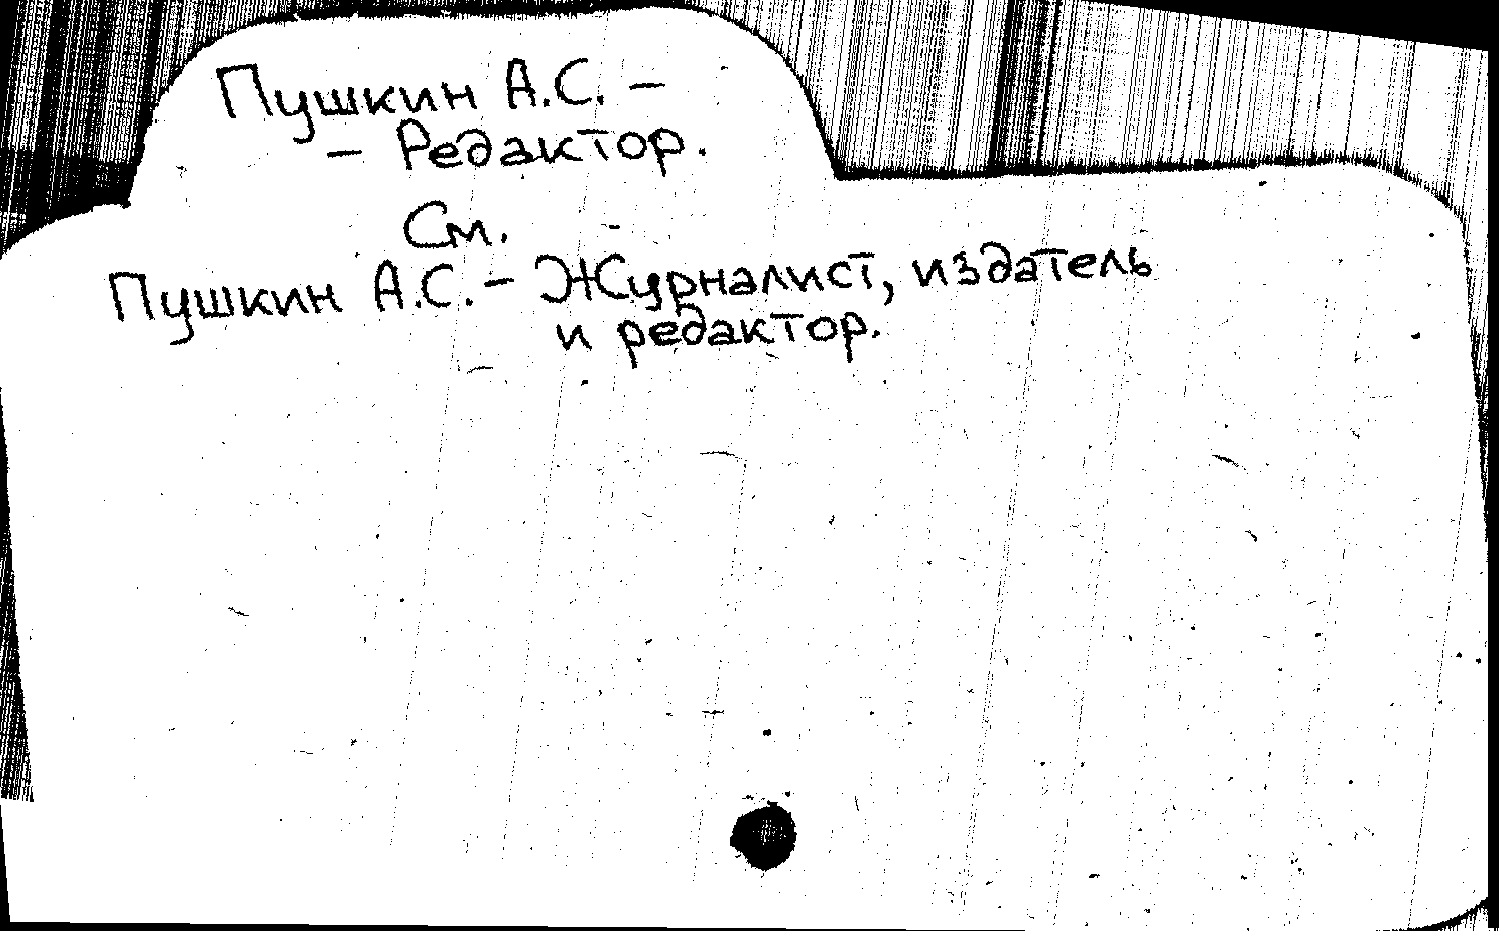 Пушкин А.С. –
– Редактор.
См.
Пушкин А.С. – Журналист, издатель
и редактор.